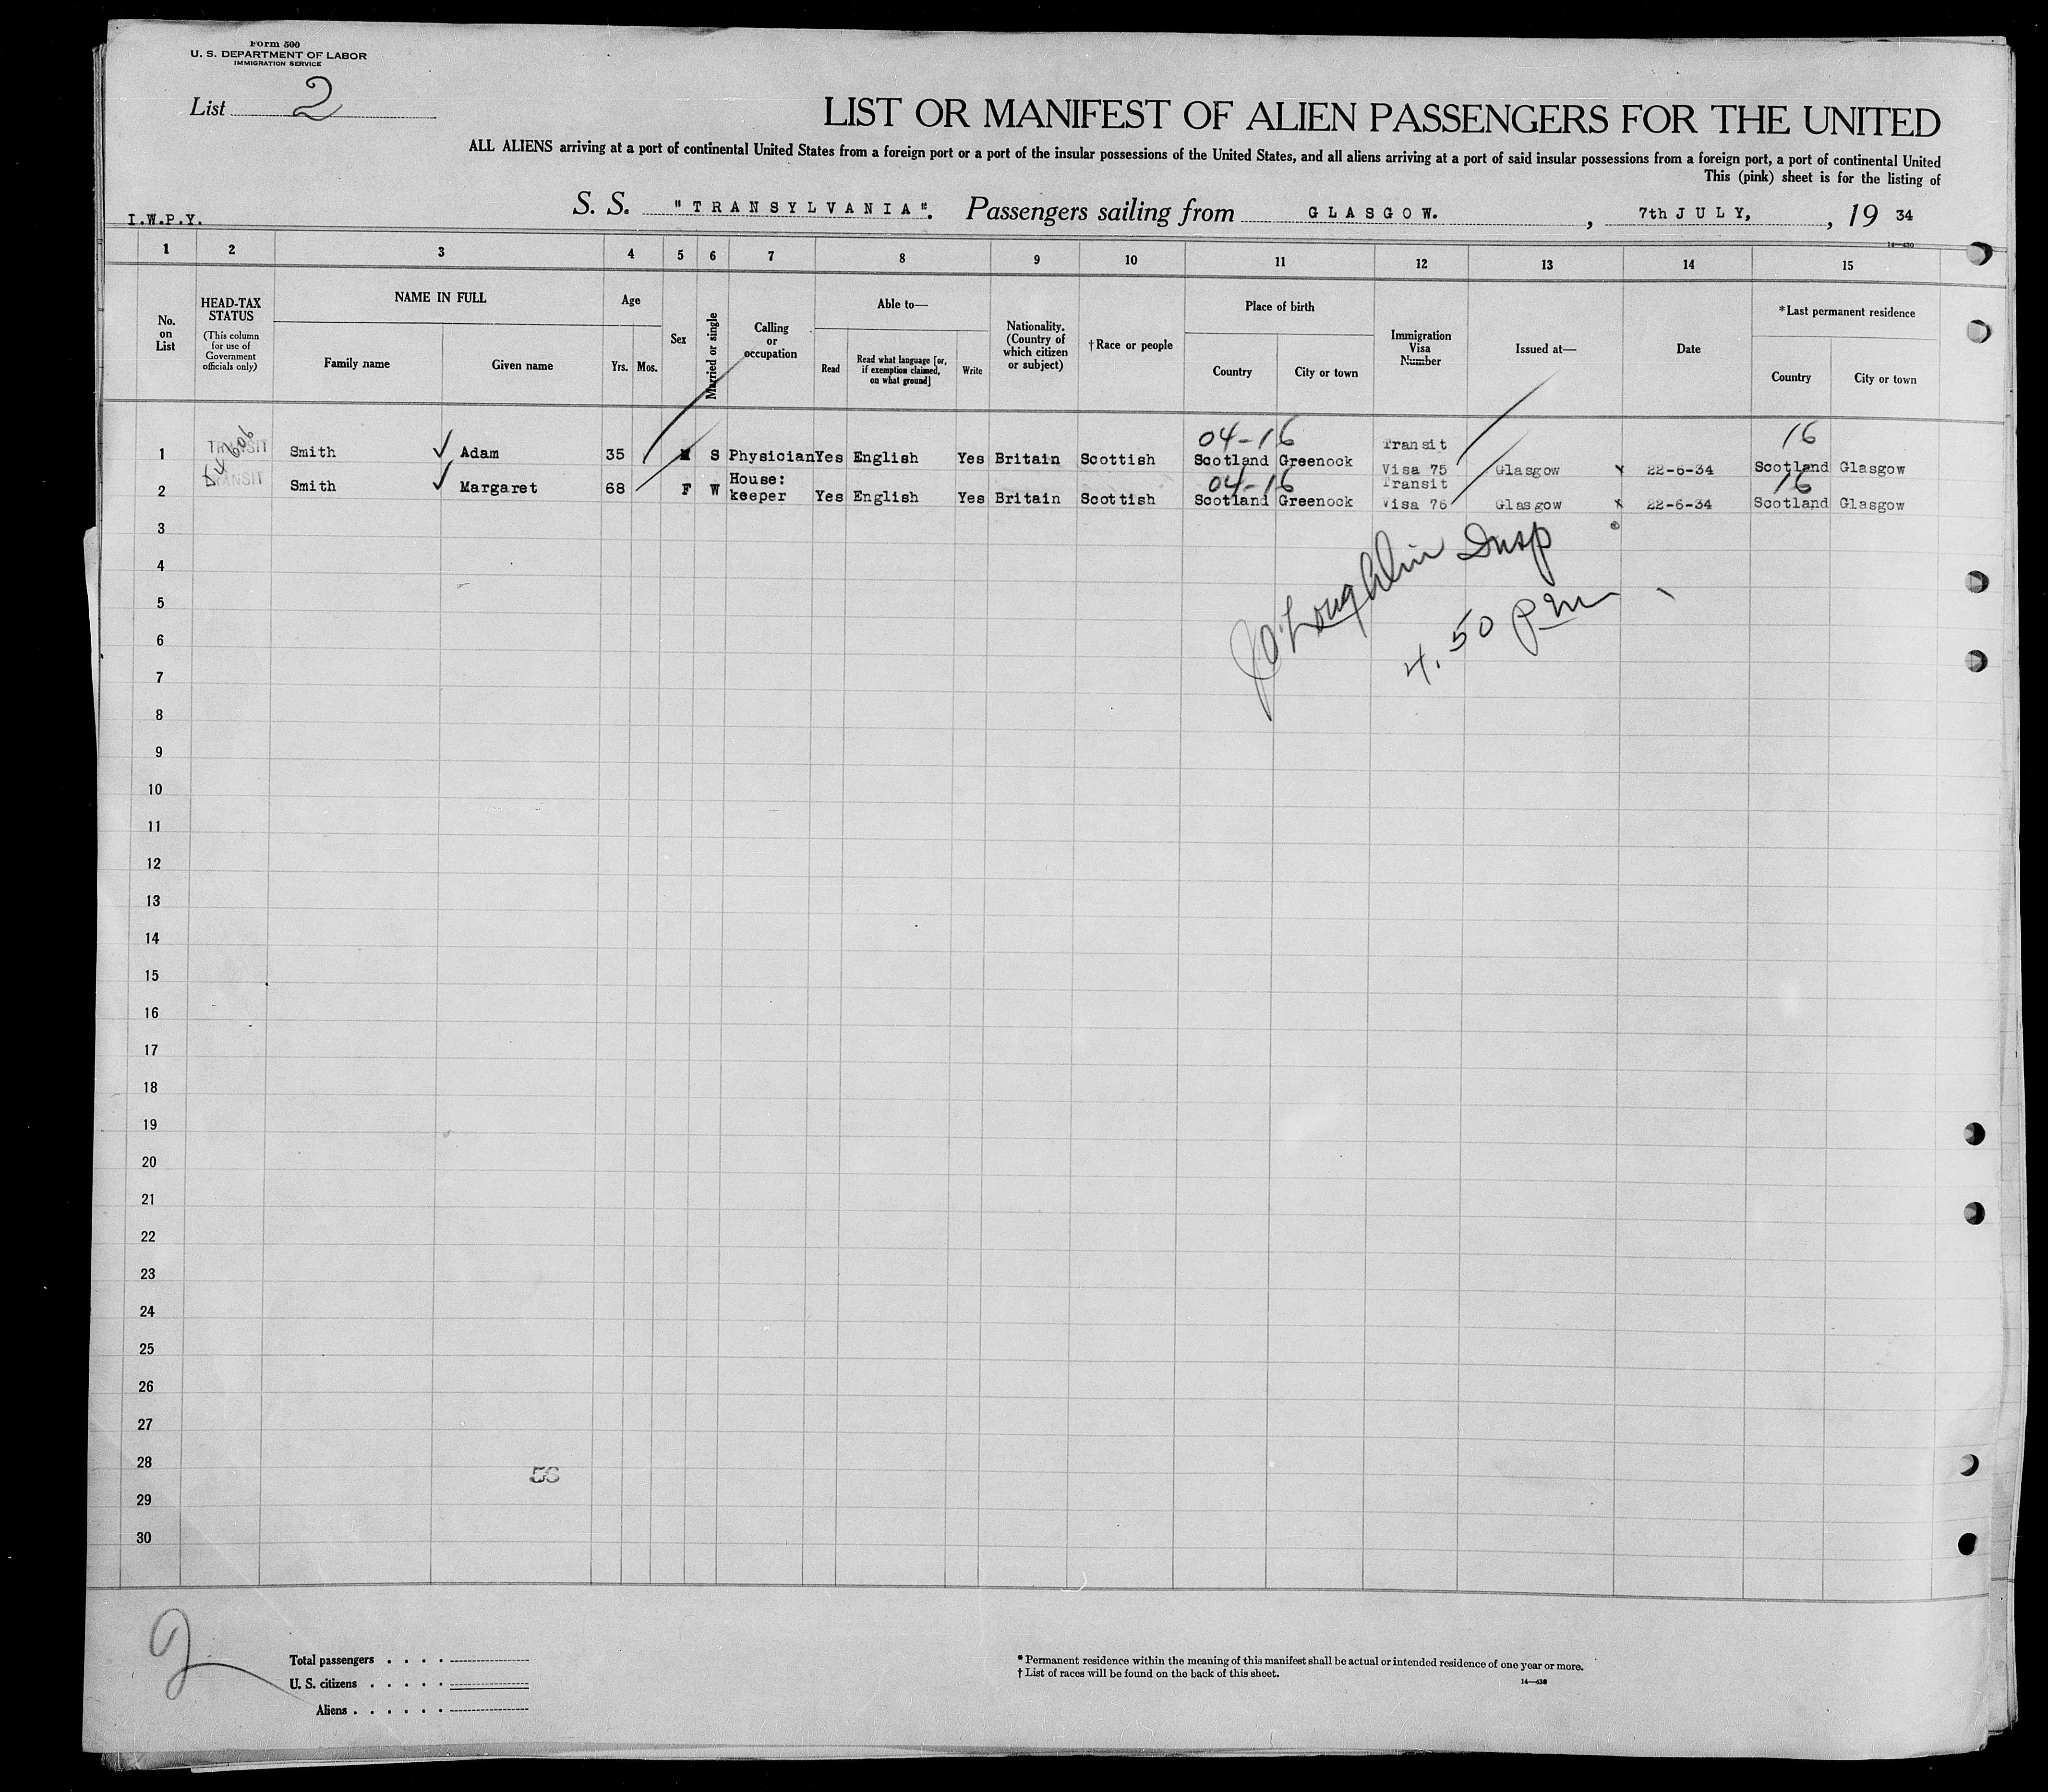 Form 500
U. S. DEPARTMENT OF LABOR
IMMIGRATION SERVICE
List 2
LIST OR MANIFEST OF ALIEN PASSENGERS FOR THE UNITED
ALL ALIENS arriving at a port of continental United States from a foreign port or a port of the insular possessions of the United States, and all aliens arriving at a port of said insular possessions from a foreign port, a port of continental United
This (pink) sheet is for the listing of
I.W.P.Y.
S. S. "TRANSYLVANIA". Passengers sailing from GLASGOW. , 7th JULY, , 19 34
14—430
1 2 3 4 5 6 7 8 9 10 11 12 13 14 15
No. on List
HEAD-TAX STATUS
(This column for use of Government officials only)
NAME IN FULL
Family name Given name
Age
Yrs. Mos.
Sex
Married or single
Calling or occupation
Able to—
Read
Read what language [or, if exemption claimed, on what ground]
Write
Nationality. (Country of which citizen or subject)
†Race or people
Place of birth
Country City or town
Immigration Visa Number
Issued at—
Date
*Last permanent residence
Country City or town
04-16 16
1 TRANSIT Smith ✓ Adam 35 M S Physician Yes English Yes Britain Scottish Scotland Greenock Transit Visa 75 Glasgow 22-6-34 Scotland Glasgow
04-16 16
2 TRANSIT Smith ✓ Margaret 68 F W House: keeper Yes English Yes Britain Scottish Scotland Greenock Transit Visa 76 Glasgow x 22-6-34 Scotland Glasgow
3
J O'Loughlin Insp
4
5
4.50 pm
6
7
8
9
10
11
12
13
14
15
16
17
18
19
20
21
22
23
24
25
26
27
28
29
30
2
Total passengers
U. S. citizens
Aliens
* Permanent residence within the meaning of this manifest shall be actual or intended residence of one year or more.
† List of races will be found on the back of this sheet.
14—430